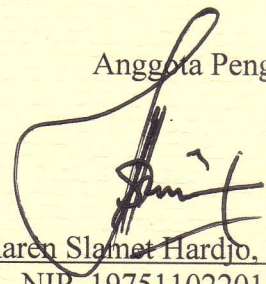 Anggota Peng
aren Slamet Hardjo,
NIP. 19751102201